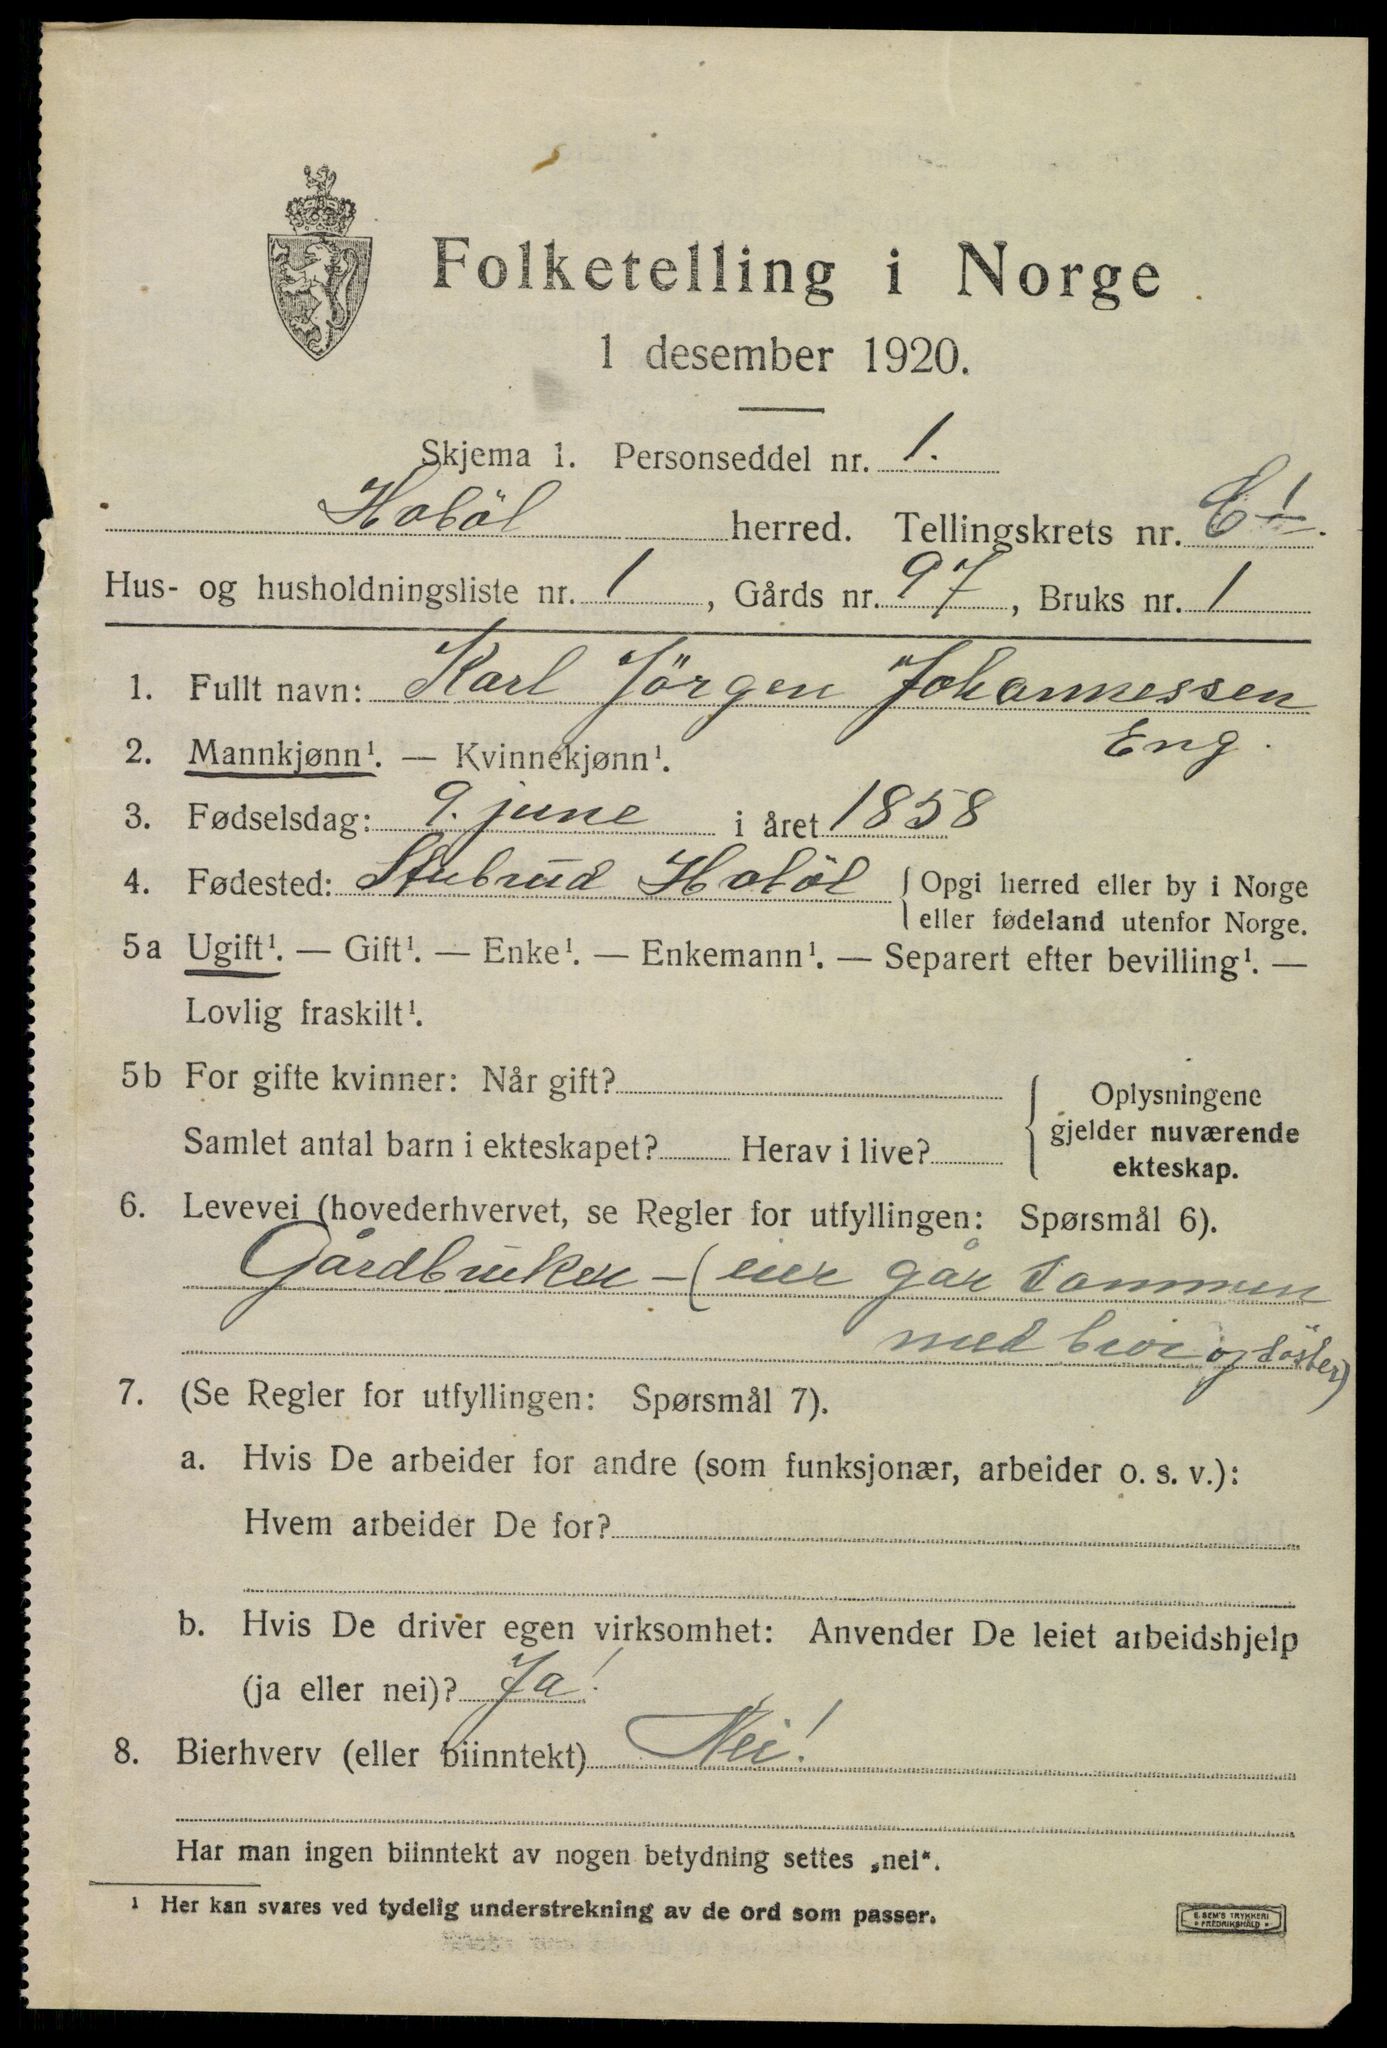 Folketelling i Norge
1 desember 1920.
Skjema 1. Personseddel nr. 1.
Hoböl herred. Tellingskrets nr. 61.
Hus- og husholdningsliste nr. 1, Gårds nr. 97, Bruks nr. 1
1. Fullt navn: Karl Jörgen Johannessen
Eng.
2. Mannkjønn¹. — Kvinnekjønn¹.
3. Fødselsdag: 9. june i året 1858
4. Fødested: Stubrud Hoböl { Opgi herred eller by i Norge
eller fødeland utenfor Norge.
5a Ugift¹. — Gift¹. — Enke¹. — Enkemann¹. — Separert efter bevilling¹. —
Lovlig fraskilt¹.
5b For gifte kvinner: Når gift?
Samlet antal barn i ekteskapet? Herav i live?
Oplysningene
gjelder nuværende
ekteskap.
6. Levevei (hovederhvervet, se Regler for utfyllingen: Spørsmål 6).
Gårdbruker – (eier går sammen
med bror og söster)
7. (Se Regler for utfyllingen: Spørsmål 7).
a. Hvis De arbeider for andre (som funksjonær, arbeider o. s. v.):
Hvem arbeider De for?
b. Hvis De driver egen virksomhet: Anvender De leiet arbeidshjelp
(ja eller nei)? Ja!
8. Bierhverv (eller biinntekt) Nei!
Har man ingen biinntekt av nogen betydning settes „nei“.
¹ Her kan svares ved tydelig understrekning av de ord som passer.
E. SEM'S TRYKKERI
FREDRIKSHALD